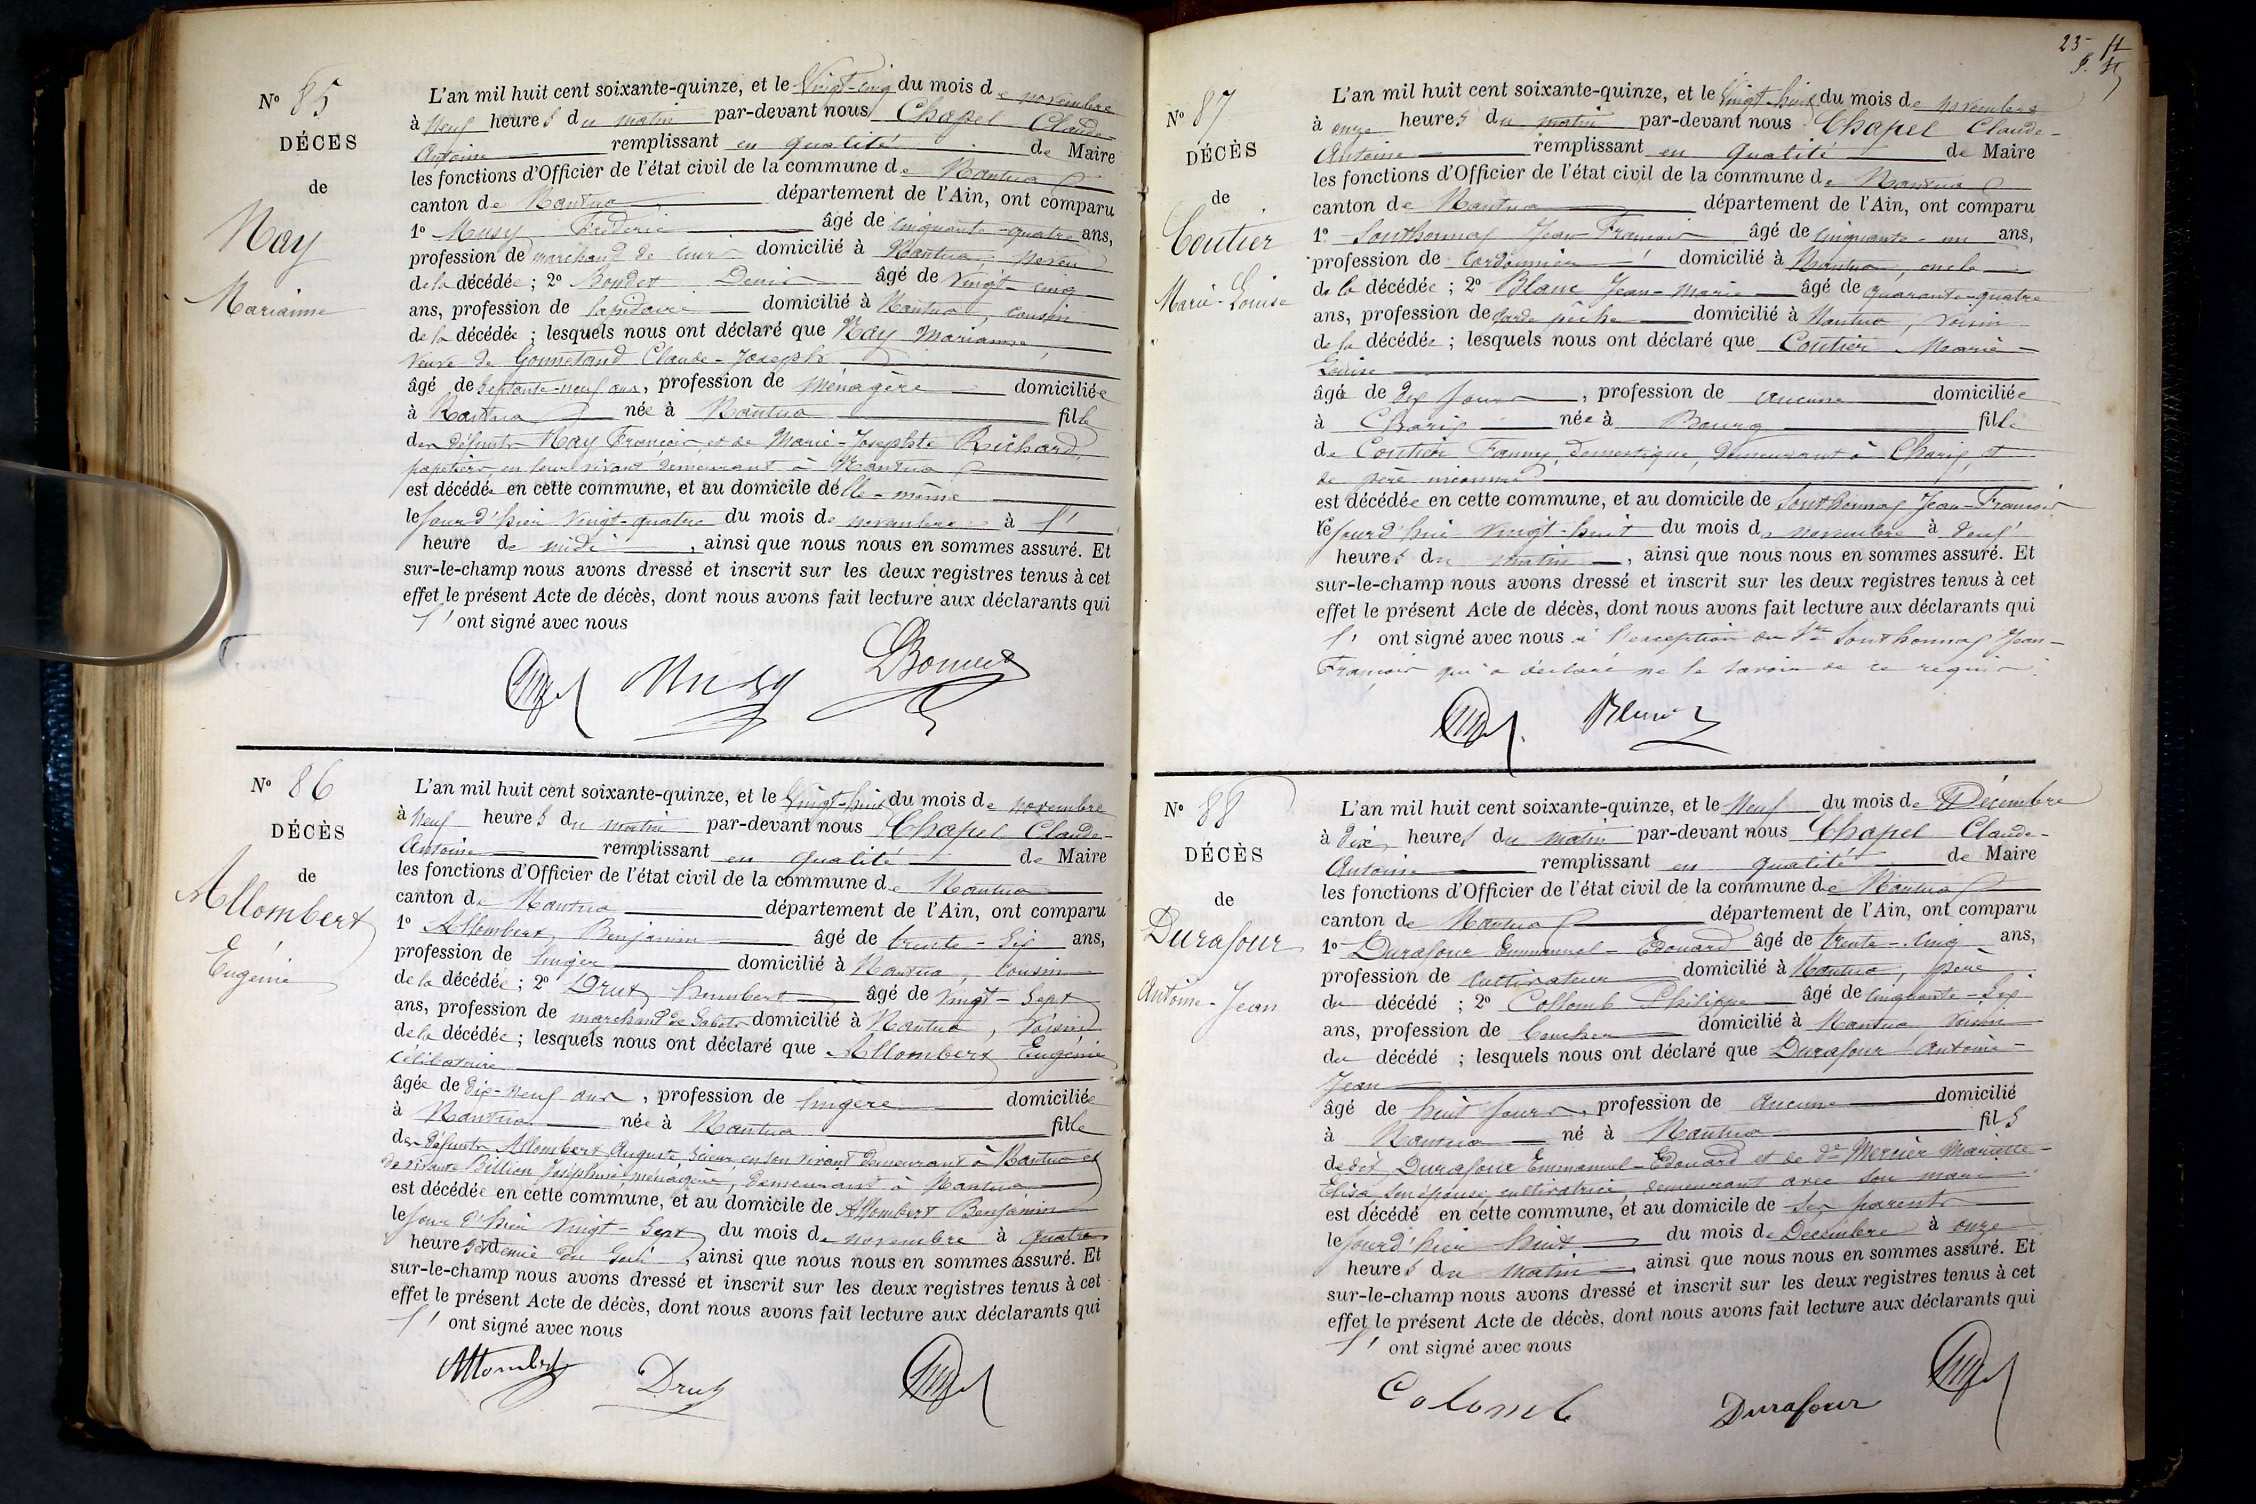 N° 85
DÉCES
de
May
Marianne
L'an mil huit cent soixante-quinze, et le Vingt-cinq du mois de novembre
à neuf heures du matin par-devant nous Chapel Claude-
Antoine remplissant en qualité de Maire
les fonctions d'Officier de l'état civil de la commune de Nantua
canton de Nantua département de l'Ain, ont comparu
1° Musy Frédéric âgé de cinquante-quatre ans,
profession de marchand de cuir domicilié à Nantua, neveu
de la décédée ; 2° Boudet Denis âgé de Vingt-cinq
ans, profession de lapidaire domicilié à Nantua, cousin
de la décédée ; lesquels nous ont déclaré que May Marianne,
veuve de Claude-Joseph
âgé de septante-neuf ans, profession de ménagère domiciliée
à Nantua née à Nantua fille
des défunts May François et de Marie-Josephte Richard,
papetiers en leur vivant demeurant à Nantua
est décédée en cette commune, et au domicile d'elle-même
le jour d'hier vingt-quatre du mois de novembre à l'
heure de midi, ainsi que nous nous en sommes assuré. Et
sur-le-champ nous avons dressé et inscrit sur les deux registres tenus à cet
effet le présent Acte de décès, dont nous avons fait lecture aux déclarants qui
l' ont signé avec nous
Musy
N° 86
DÉCÈS
de
Allombert
Eugénie
L'an mil huit cent soixante-quinze, et le Vingt-huit du mois de novembre
à neuf heures du matin par-devant nous Chapel Claude-
Antoine remplissant en qualité de Maire
les fonctions d'Officier de l'état civil de la commune de Nantua
canton de Nantua département de l'Ain, ont comparu
1° Allombert Benjamin âgé de trente-six ans,
profession de linger domicilié à Nantua, cousin
de la décédée ; 2° Drut Humbert âgé de Vingt-sept
ans, profession de marchand de sabots domicilié à Nantua, voisin
de la décédée ; lesquels nous ont déclaré que Allombert Eugénie
célibataire
âgée de dix-neuf ans, profession de lingère domiciliée
à Nantua née à Nantua fille
de défunt Allombert Auguste scieur en son vivant demeurant à Nantua et
de vivante Billion Joséphine, ménagère, demeurant à Nantua
est décédée en cette commune, et au domicile de Allombert Benjamin
le jour d'hier vingt-sept du mois de novembre à quatre
heures et demie du soir, ainsi que nous nous en sommes assuré. Et
sur-le-champ nous avons dressé et inscrit sur les deux registres tenus à cet
effet le présent Acte de décès, dont nous avons fait lecture aux déclarants qui
l' ont signé avec nous
Allombert Drut
23
N° 87
DÉCÈS
de
Coutier
Marie-Louise
L'an mil huit cent soixante-quinze, et le Vingt-huit du mois de novembre
à onze heures du matin par-devant nous Chapel Claude-
Antoine remplissant en qualité de Maire
les fonctions d'Officier de l'état civil de la commune de Nantua
canton de Nantua département de l'Ain, ont comparu
1° Southonnax Jean-François âgé de cinquante-un ans,
profession de cordonnier domicilié à Nantua, oncle
de la décédée ; 2° Blanc Jean-Marie âgé de quarante-quatre
ans, profession de garde pêche domicilié à Nantua, voisin
de la décédée ; lesquels nous ont déclaré que Coutier Marie-
Louise
âgée de dix jours, profession de aucune domiciliée
à Charix née à Bourg fille
de Coutier Fanny, domestique, demeurant à Charix, et
de père inconnu
est décédée en cette commune, et au domicile de Southonnax Jean-François
le jourd'hui vingt-huit du mois de novembre à neuf
heures du matin, ainsi que nous nous en sommes assuré. Et
sur-le-champ nous avons dressé et inscrit sur les deux registres tenus à cet
effet le présent Acte de décès, dont nous avons fait lecture aux déclarants qui
l' ont signé avec nous à l'exception du Sr Southonnax Jean-
François qui a déclaré ne le savoir de ce requis.
N° 88
DÉCÈS
de
Durafour
Antoine-Jean
L'an mil huit cent soixante-quinze, et le Neuf du mois de Décembre
à dix heures du matin par-devant nous Chapel Claude-
Antoine remplissant en qualité de Maire
les fonctions d'Officier de l'état civil de la commune de Nantua
canton de Nantua département de l'Ain, ont comparu
1° Durafour Emmanuel-Edouard âgé de trente-cinq ans,
profession de cultivateur domicilié à Nantua, père
du décédé ; 2° Collomb Philippe âgé de cinquante-six
ans, profession de boucher domicilié à Nantua voisin
du décédé ; lesquels nous ont déclaré que Durafour Antoine-
Jean
âgé de huit jours, profession de aucune domicilié
à Nantua né à Nantua fils
dedit Durafour Emmanuel-Edouard et de De Mercier Mariette-
Elisa son épouse, cultivatrice, demeurant avec son mari
est décédé en cette commune, et au domicile de ses parents
le jourd'hier huit du mois de Décembre à onze
heures du matin, ainsi que nous nous en sommes assuré. Et
sur-le-champ nous avons dressé et inscrit sur les deux registres tenus à cet
effet le présent Acte de décès, dont nous avons fait lecture aux déclarants qui
l' ont signé avec nous
Colomb Durafour